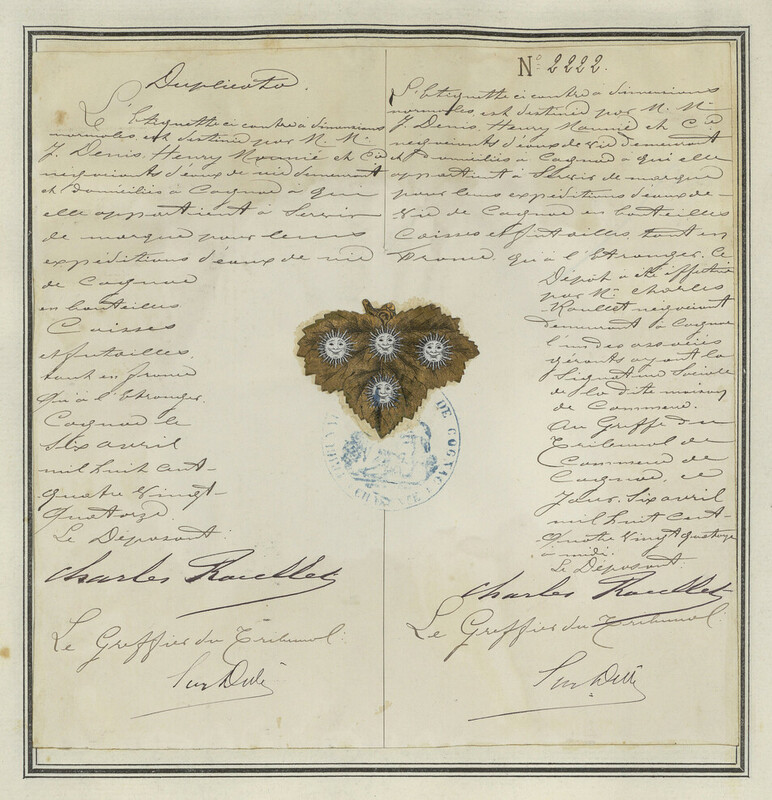 Duplicata.
L'étiquette ci contre à dimensions
normales est destiné par M. M.
J. Denis, Henry Mounié et Cie
négociants d'eaux de vie demeurant
et domiciliés à Cognac à qui
elle appartient à Servir
de marque pour leurs
expéditions d'eaux de vie
de Cognac
en bouteilles
Caisses
et futailles,
tant en france
qu'à l'Etranger.
Cognac le
Six avril
mil huit cent
quatre vingt
quatorze
Le Déposant:
Charles Roullet
Le Greffier du Tribunal:
No 2222.
L'étiquette ci contre à dimensions
normales est destiné par M. M.
J. Denis, Henry Mounié et Cie
négociants d'eaux de vie demeurant
et domiciliés à Cognac à qui elle
appartient à Servir de marque
pour leurs expéditions d'eaux de
vie de Cognac en bouteilles
Caisses et futailles tant en
France, qu'à l'Etranger. Le
Dépôt a été effectué
par Mr. Charles
Roullet négociant
demeurant à Cognac
l'un des associés
gérants ayant la
Signature Sociale
de la dite maison
de Commerce.
Au Greffe du
Tribunal de
Commerce de
Cognac, ce
Jour, Six avril
mil huit cent
quatre vingt quatorze
à midi.
Le Déposant:
Charles Roullet
Le Greffier du Tribunal:
DE COGNAC